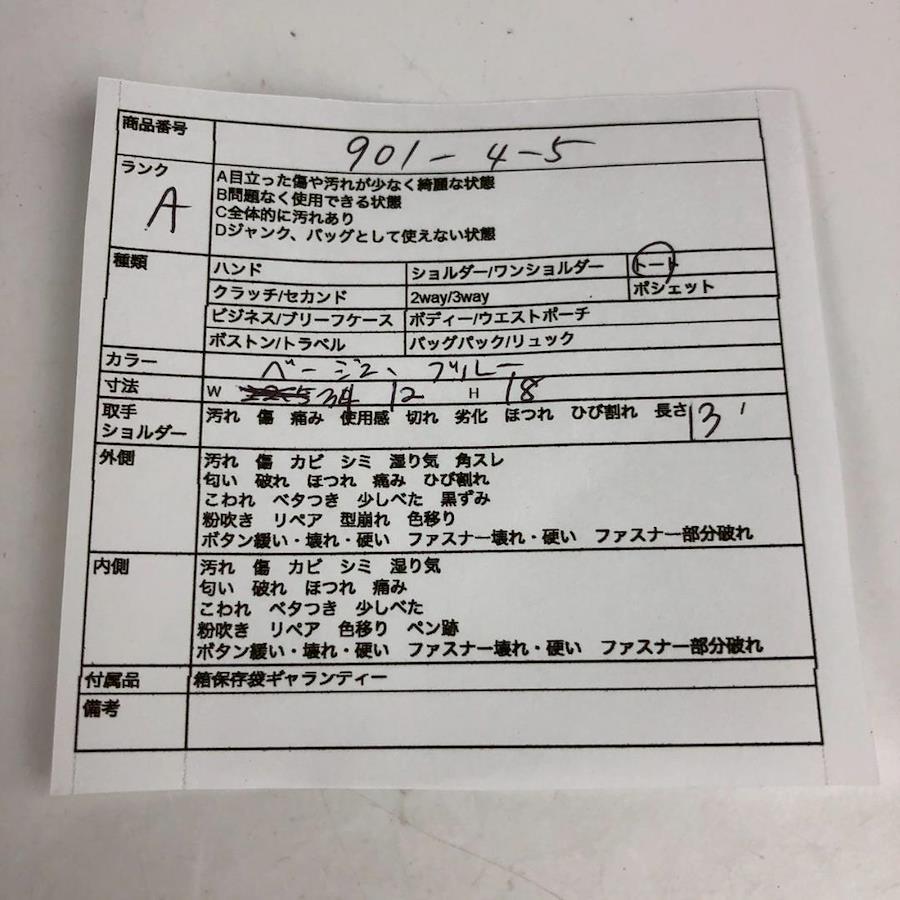 商品番号 901-4-5
ランク A
A目立った傷や汚れが少なく綺麗な状態
B問題なく使用できる状態
C全体的に汚れあり
Dジャンク、バッグとして使えない状態
種類 ハンド ショルダー/ワンショルダー トート
クラッチ/セカンド 2way/3way ポシェット
ビジネス/ブリーフケース ボディー/ウエストポーチ
ボストン/トラベル バッグパック/リュック
カラー ベージュ、ブルー
寸法 W 34 12 H 18
取手 汚れ 傷 痛み 使用感 切れ 劣化 ほつれ ひび割れ 長さ 13
ショルダー
外側 汚れ 傷 カビ シミ 湿り気 角スレ
匂い 破れ ほつれ 痛み ひび割れ
こわれ ベタつき 少しべた 黒ずみ
粉吹き リペア 型崩れ 色移り
ボタン緩い・壊れ・硬い ファスナー壊れ・硬い ファスナー部分破れ
内側 汚れ 傷 カビ シミ 湿り気
匂い 破れ ほつれ 痛み
こわれ ベタつき 少しべた
粉吹き リペア 色移り ペン跡
ボタン緩い・壊れ・硬い ファスナー壊れ・硬い ファスナー部分破れ
付属品 箱保存袋ギャランティー
備考